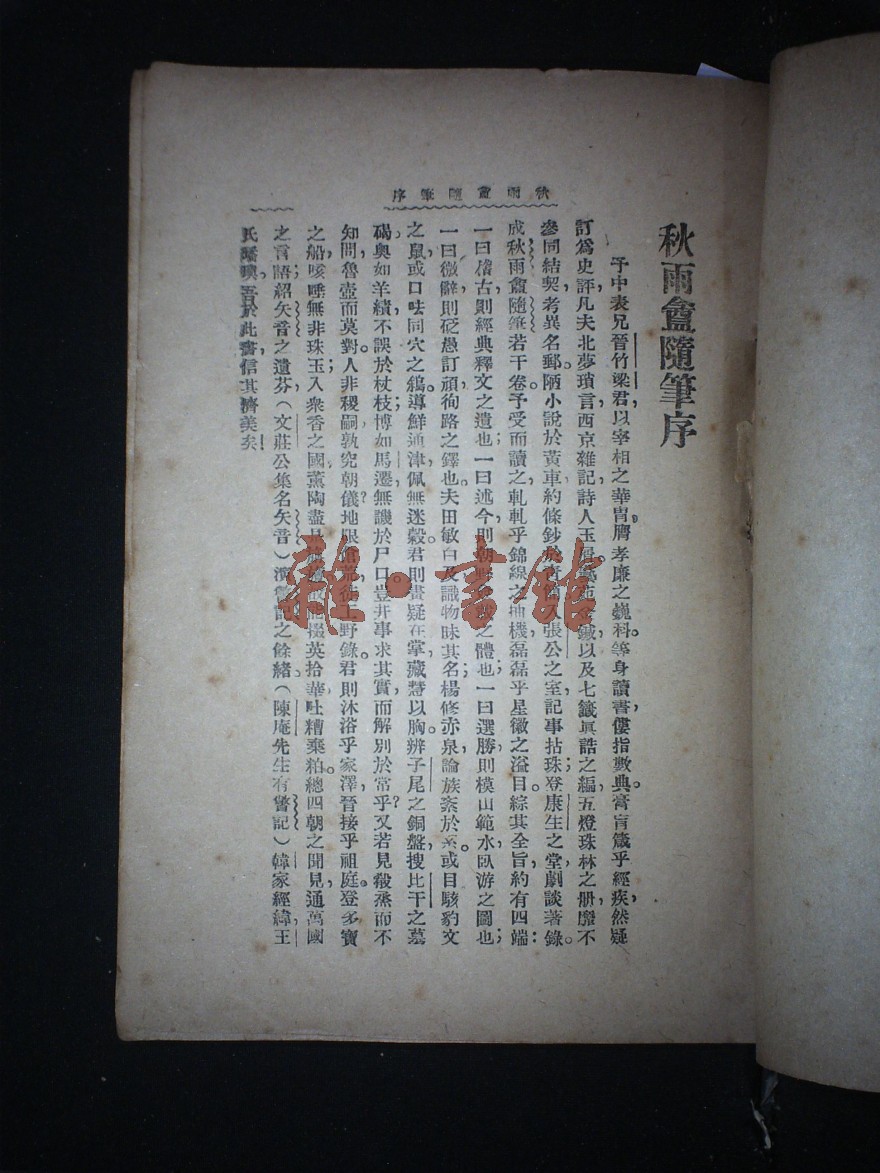 秋雨盦隨筆序
秋雨盦隨筆序
予中表兄晉竹梁君,以宰相之華胄,膺孝廉之巍科。等身讀書,僂指數典。膏肓箴乎經疾,然疑
訂爲史評。凡夫北夢瑣言,西京雜記,詩人玉屑,以及七籤眞誥之編,五燈珠林之册,靡不
參同結契,考異名郵。陋小說於黃車,約條鈔於入張公之室,記事拈珠;登康生之堂,劇談著錄。
成秋雨盦隨筆若干卷。予受而讀之,軋軋乎錦線之抽機,磊磊乎星徽之溢目。綜其全旨,約有四端:
一曰稽古,則經典釋文之遺也;一曰述今,則朝野之體也;一曰選勝,則模山範水,臥游之圖也;
一曰微辭,則砭愚訂頑,徇路之鐸也。夫田敏白及,識物昧其名;楊修赤泉,論族紊於系。或目駭豹文
之鼠,或口呿同穴之鵵。導鮮通津,佩無迷穀。君則畫疑在掌,藏慧以胸。辨子尾之銅盤,搜比干之墓
碣。奥如羊績,不誤於杖枝;博如馬遷,無譏於尸口。豈非事求其實,而解別於常乎?又若見殽烝而不
知,問魯壺而莫對。人非稷嗣,孰究朝儀?地限館徒野錄。君則沐浴乎家澤,晉接乎祖庭。登多寶
之船,咳唾無非珠玉;入衆香之國,薰陶盡是能掇英拾華,吐糟棄粕。總四朝之聞見,通萬國
之言語。紹矢音之遺芬(文莊公集名矢音)演瞥記之餘緒。(諫庵先生有瞥記)韓家經緯,王
氏靑箱,吾於此書,信其濟美矣
雜·書館